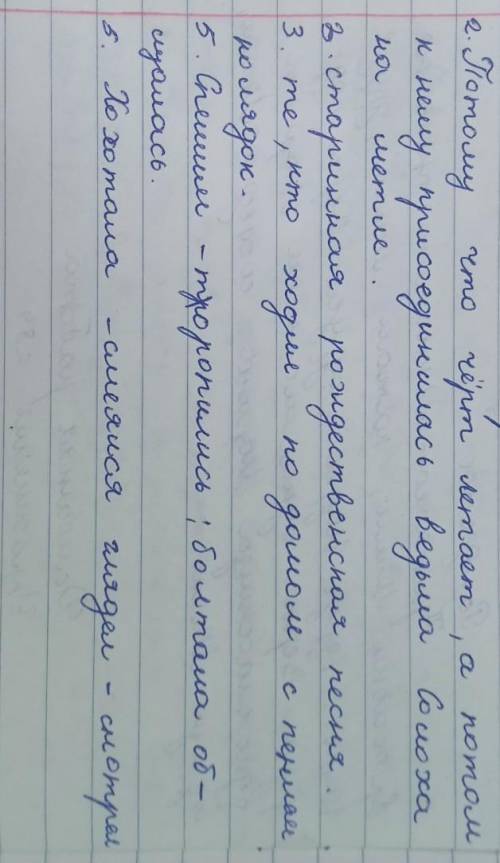 2. Потому что чёрт летает, а потом
к нему присоединилась ведьма Солоха
на метле.
2. старинная рождественская песня.
3. те, кто ходил по домом с пением
колядок.
5. Спешил - торопились; болтала об-
щалась.
5. Хохотала - смеялися глядел - смотрел